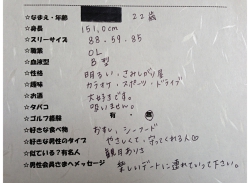 ☆なまえ・年齢 22歳
☆身長 151.0cm
☆スリーサイズ 88.59.85
☆職業 OL
☆血液型 B型
☆性格 明るい、さみしがり屋
☆趣味 カラオケ・スポーツ・ドライブ
☆お酒 大好きです。
☆タバコ 吸いません。
☆ゴルフ経験 有・無
☆好きな食べ物 おすし、シーフード
☆好きなタイプ やさしくて、守ってくれる人
☆似ている?有名人 観月ありさ
☆男性会員さまへメッセージ 楽しいデートに連れていって下さい。